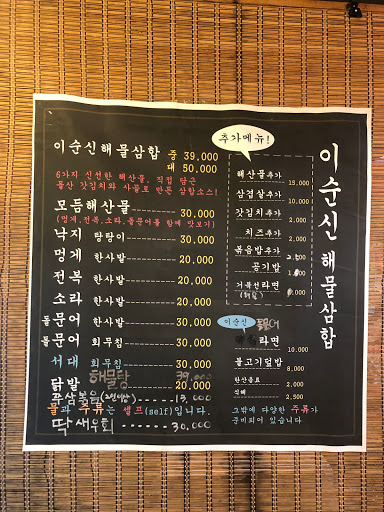 이순신해물삼합 중 39,000
대 50,000
6가지 신선한 해산물, 직접 담근
돌산 갓김치와 사물로 만든 삼합소스!
모듬해산물 30,000
(멍게,전복,소라,돌문어를 함께 맛보기)
낙지 탕탕이 30,000
멍게 한사발 20,000
전복 한사발 20,000
소라 한사발 20,000
돌문어 한사발 30,000
돌문어 회무침 30,000
서대 회무침 30,000
해물탕 39,000
닭발 20,000
쭈삼볶음 13,000
물과 주류는 셀프(self)입니다.
딱새우회 30,000
추가메뉴!
해산물추가 15,000
삼겹살추가 10,000
갓김치추가 2,000
치즈추가 2,000
볶음밥추가 2,000
공기밥
거북선라면
이순신
라면 10,000
불고기덮밥 8,000
탄산음료 2,000
식혜 2,500
그밖에 다양한 주류가
준비되어 있습니다
이순신 해물삼합